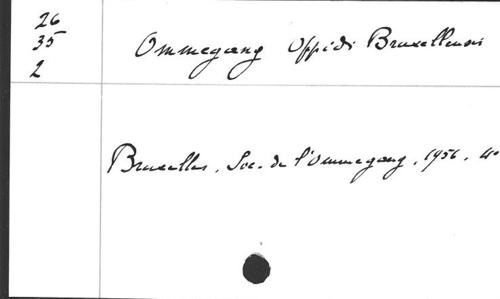 26
35
2
Ommegang Oppidi Bruxellensis
Bruxelles, Soc. de l'Ommegang, 1956, 4°